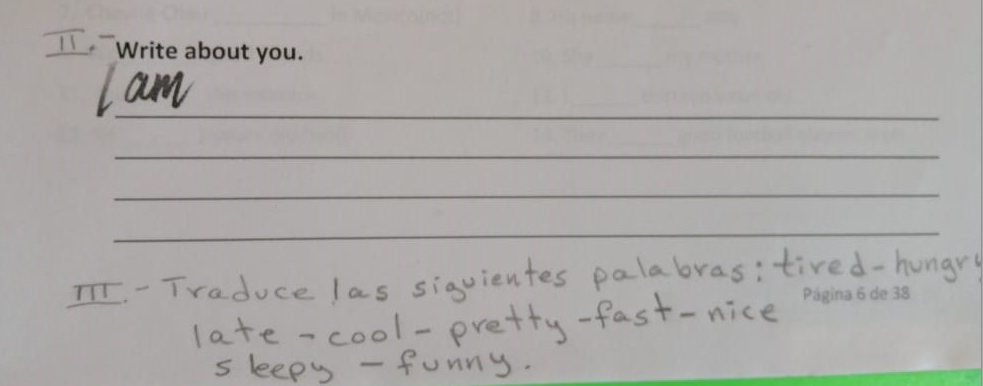 II.- Write about you.
I am
III.- Traduce las siguientes palabras: tired - hungry
Página 6 de 38
late - cool - pretty - fast - nice
sleepy - funny.